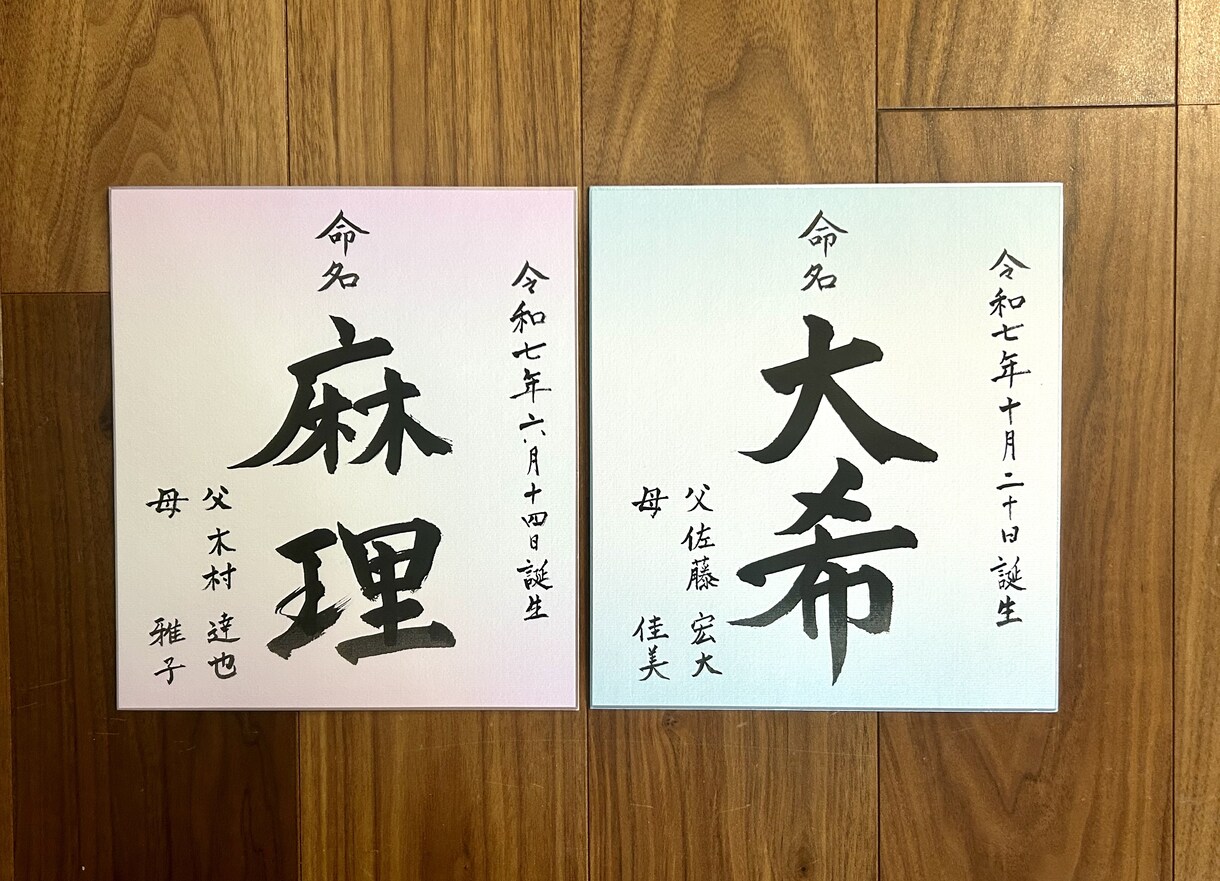 令和七年六月十四日誕生
命名
麻理
父 木村 達也
母 雅子
令和七年十月二十日誕生
命名
大希
父 佐藤 宏大
母 佳美